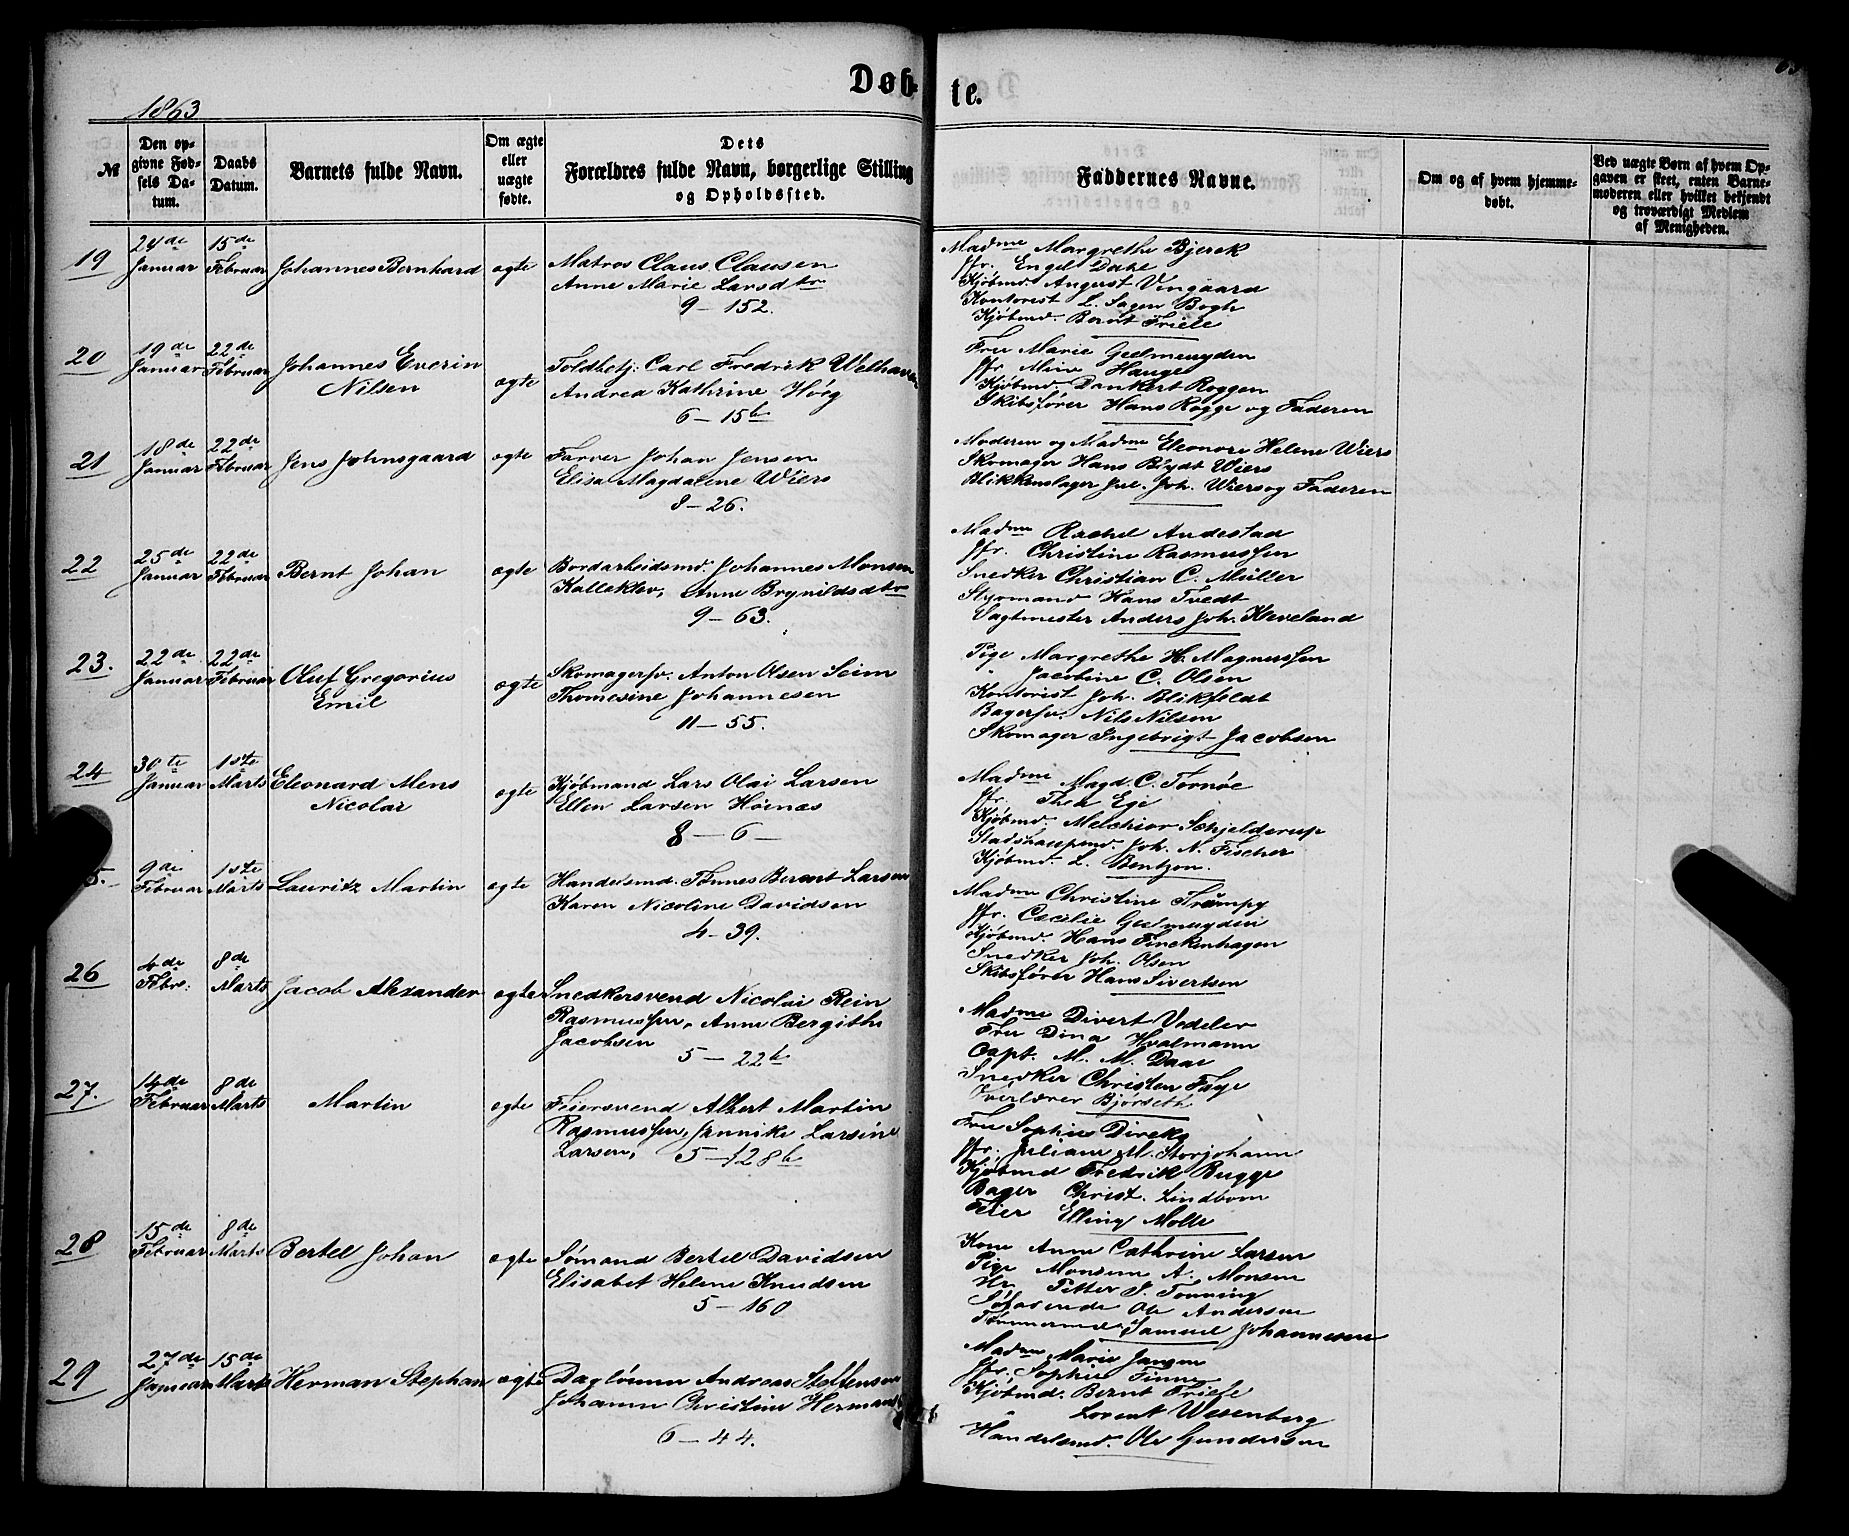 Døb-
te.
1863
№
Den op-
givne Fød-
sels Da-
tum.
Daabs
Datum.
Barnets fulde Navn.
Om ægte
eller
uægte
fødte.
Dets
Forældres fulde Navn, borgerlige Stilling
og Opholdssted.
Faddernes Navne.
Om og af hvem hjemme-
døbt.
Ved uægte Børn af hvem Op-
gaven er skeet, enten Barne-
moderen eller hvilket bekjendt
og troværdigt Medlem
af Menigheden.
19
24de
Januar
15de
Februar
Johannes Bernhard
ægte
Matros Claus Clausen
Anne Marie Larsdtr
9 – 152.
Madme Margrethe Bjerck
Jfr. Engel Dahl
Kjøbmd. August Vingaard
Kontorist L. Sagen Bøgh
Kjøbmd. Bernt Friele
20
19de
Januar
22de
Februar
Johannes Everin
Nilsen
ægte
Toldbetj. Carl Fredrik Welhaven
Andrea Kathrine Høeg
6 – 15b
Fru Marie Geelmeuyden
Jfr. Mine Hauge
Kjøbmd. Dankert Roggen
Skibsfører Hans Rogge og Faderen
21
18de
Januar
22de
Februar
Jens Johnsgaard
ægte
Farver Johan Jensen
Elisa Magdalene Wiers
8 – 26.
Moderen og Madme Eleonore Helene Wiers
Skomager Hans Bøydt Wiers
Blikkenslager Jul. Joh. Wiers og Faderen
22
25de
Januar
22de
Februar
Bernt Johan
ægte
Bordarbeidsmd. Johannes Monsen
Kalleklev, Anne Brynildsdtr
9 – 63.
Madme Rachel Andestad
Jfr. Christine Rasmussen
Snedker Christian C. Müller
Styrmand Hans Tvedt
Vagtmester Anders Joh. Kleveland
23.
22de
Januar
22de
Februar
Oluf Gregorius
Emil
ægte
Skomagersv. Anton Olsen Seim
Thomesine Johannesen
11 – 55.
Pige Margrethe H. Magnussen
" Jacobine C. Olsen
Kontorist Joh. Blikfeldt
Bagersv. Nils Nilsen
Skomager Ingebrigt Jacobsen
24
30te
Januar
1ste
Marts
Eleonard Mens
Nicolai
ægte
Kjøbmand Lars Olai Larsen
Ellen Larsen Høinæs
8 – 6 –
Madme Magd. C. Tornøe
Jfr. Thea Ege
Kjøbmd. Melchior Schjelderup
Stadshauptmd. Joh. N. Fischer
Kjøbmd L. Bentzon.
5.
9de
Februar
1ste
Marts
Lauritz Martin
ægte
Handelsmd. Tønnes Berent Larsen
Karen Nicoline Davidsen
4 – 39.
Madme Christine Trümpy
Jfr. Cæcilie Geelmuyden
Kjøbmd. Hans Finckenhagen
Snedker Joh. Olsen
Skibsfører Hans Sivertsen
26
4de
Febr.
8de
Marts
Jacob Alexander
ægte
Snedkersvend Nicolai Rein
Rasmussen, Anne Bergithe
Jacobsen
5 – 22b
Madme Divert Vedeler
Fru Dina Hvalmann
Capt. M. M. Daae
Snedker Christen Fege
Overlærer Bjørseth
27.
14de
Februar
8de
Marts
Martin
ægte
Feiersvend Albert Martin
Rasmussen, Jannike Larsine
Larsen,
5 – 128b
Fru Sophie Direks
Jfr. Juliane M. Storjohann
Kjøbmd Fredrik Bugge
Bager Christ. Lindbom
Feier Elling Molle
28
15de
Februar
8de
Marts
Bertel Johan
ægte
Sømand Bertel Davidsen
Elisabet Helene Knudsen
5 – 160
Kone Anne Cathrine Larsen
Pige Monsine A. Monsen
Hr. Petter J. Tonning
Søfarende Ole Andersen
Tømmermd. Samuel Johannesen
29
27de
Januar
15de
Marts
Herman Stephan
ægte
Dagløner Andreas Steffensen
Johanne Christine Hermans
6 – 44.
Madme Marie Jansen
Jfr. Sophie Finne
Kjøbmd. Bernt Friele
" Lorent Wesenberg
Handelsmd. Ole Gundersen